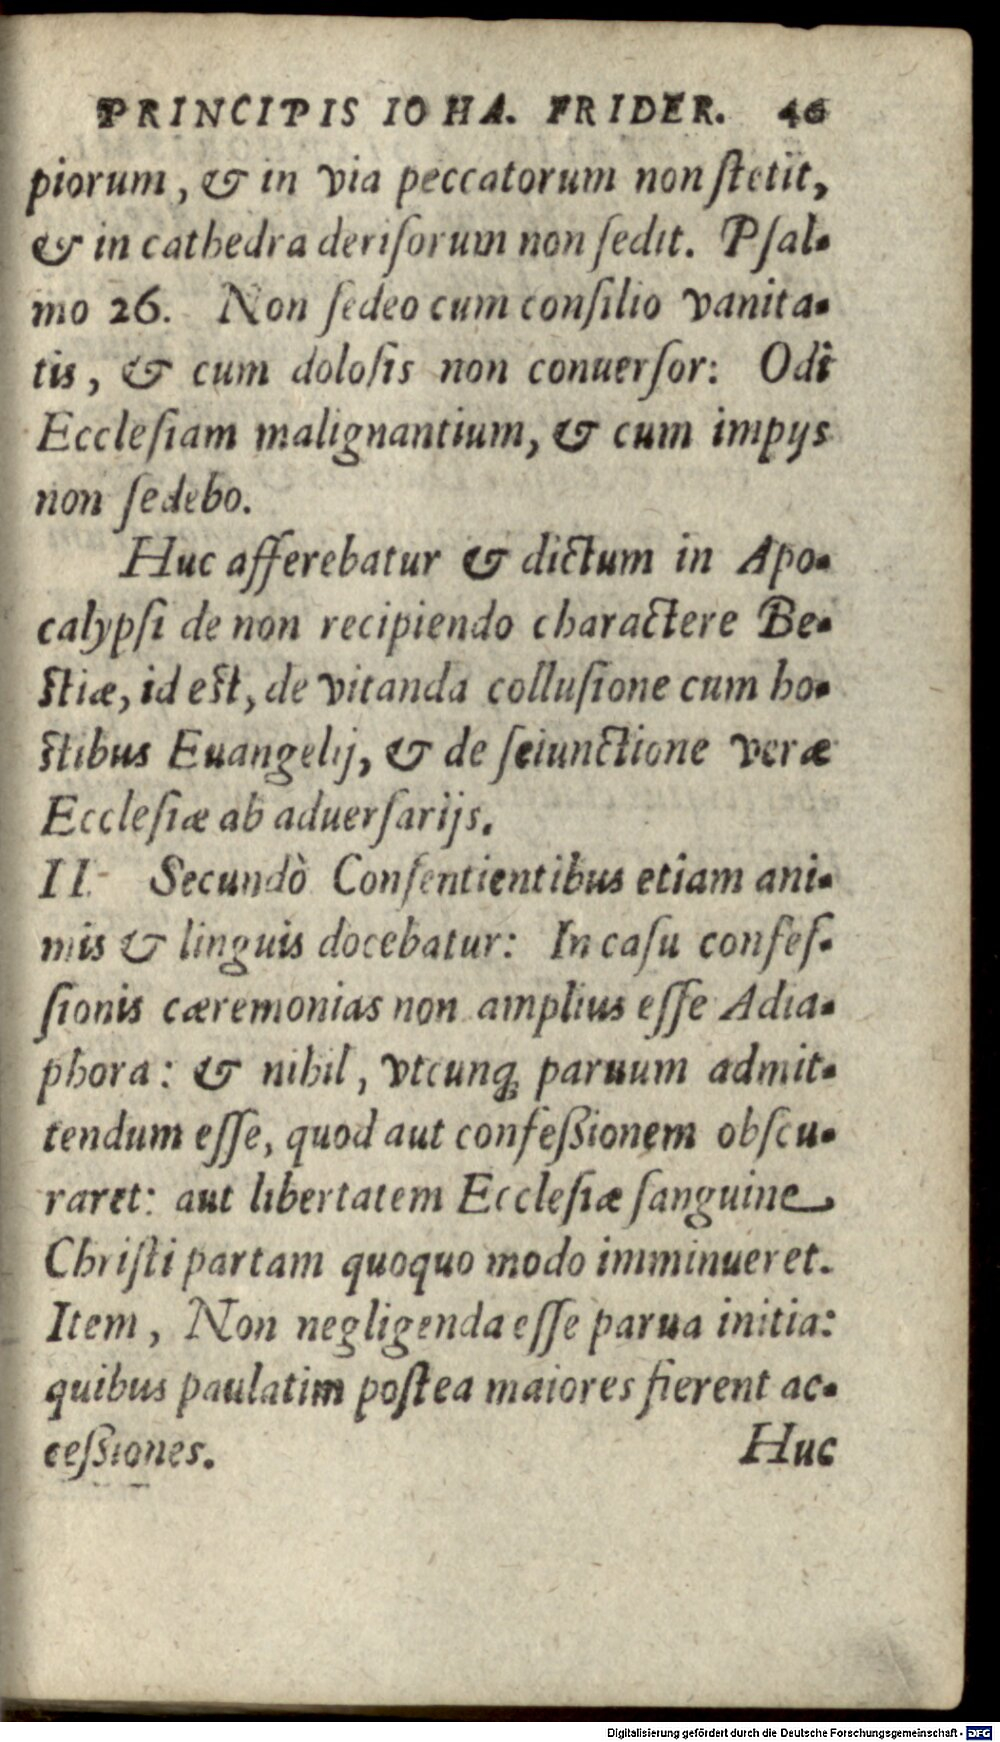 PRINCIPIS IOHA. FRIDER. 46
piorum, & in via peccatorum non ſtetit,
& in cathedra deriſorum non ſedit. Pſal-
mo 26. Non ſedeo cum conſilio vanita-
tis, & cum doloſis non conuerſor: Odi
Eccleſiam malignantium, & cum impijs
non ſedebo.
Huc afferebatur & dictum in Apo-
calypſi de non recipiendo charactere Be-
ſtiæ, id eſt, de vitanda colluſione cum ho-
ſtibus Euangelij, & de ſeiunctione veræ
Eccleſiæ ab aduerſarijs.
II. Secundò Conſentientibus etiam ani-
mis & linguis docebatur: In caſu confeſ-
ſionis cæremonias non amplius eſſe Adia-
phora: & nihil, vtcunq; paruum admit-
tendum eſſe, quod aut confeßionem obſcu-
raret: aut libertatem Eccleſiæ ſanguine
Chriſti partam quoquo modo imminueret.
Item, Non negligenda eſſe parua initia:
quibus paulatim poſtea maiores fierent ac-
ceßiones. Huc
Digitalisierung gefördert durch die Deutsche Forschungsgemeinschaft - DFG